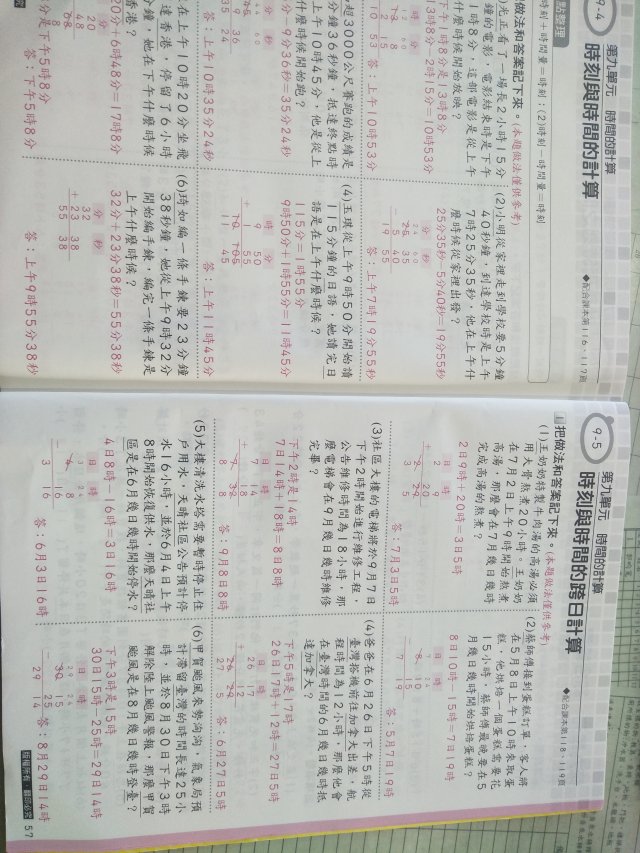 9-4
第九單元 時間的計算
時刻與時間的計算
◆配合課本第116、117頁
點整理
時刻+時間量=時刻;(2)時刻-時間量=時刻
做法和答案記下來。(本題做法僅供參考)
光正看了一場長2小時15分
鐘的電影,電影結束時是下午
1時8分,這部電影是從上午
什麼時候開始放映?
下午1時8分是13時8分
13時8分-2時15分=10時53分
答:上午10時53分
(2)小明從家裡走到學校要5分鐘
40秒鐘,到達學校時是上午
7時25分35秒,他在上午什
麼時候從家裡出發?
25分35秒-5分40秒=19分55秒
分 秒
- 5 40
19 55
答:上午7時19分55秒
超3000公尺賽跑的成績是
分鐘36秒鐘,抵達終點時
上午10時45分,他是從上
時候開始跑?
分-9分36秒=35分24秒
9 36
35 24
答:上午10時35分24秒
(4)玉琪從上午9時50分開始讀
115分鐘的日語,她讀完日
語是在上午什麼時候?
115分=1時55分
9時50分+1時55分=11時45分
時 分
9 50
+ 1 55
10 105
11 45
答:上午11時45分
在上午10時20分坐飛
達香港,停留了6小時
分鐘,她在下午什麼時候
香港?
20分+6時48分=17時8分
20
48
68
分是下午5時8分
答:下午5時8分
(6)琦如編一條手鍊要23分鐘
38秒鐘,她從上午9時32分
開始編手鍊,編完一條手鍊是
上午什麼時候?
32分+23分38秒=55分38秒
分 秒
32
+ 23 38
55 38
答:上午9時55分38秒
9-5
第九單元 時間的計算
時刻與時間的跨日計算
◆配合課本第118、119頁
1 把做法和答案記下來。(本題做法僅供參考)
(1)王奶奶特製牛肉湯的高湯必須
用大骨熬煮20小時。王奶奶
在7月2日上午9時開始熬煮
高湯,那麼會在7月幾日幾時
完成高湯的熬煮?
2日9時+20時=3日5時
日 時
2 9
+ 20
2 29
3 5
答:7月3日5時
(2)蔡師傅接到蛋糕訂單,客人將
在5月8日上午10時來取蛋
糕,他烘焙一個蛋糕需要花
15小時,蔡師傅最晚要在5
月幾日幾時開始烘焙蛋糕?
8日10時-15時=7日19時
日 時
8 10
- 15
7 19
答:5月7日19時
(3)社區大樓的電梯將於9月7日
下午2時開始進行維修工程,
公告維修時間為18小時,那
麼電梯會在9月幾日幾時維修
完畢?
下午2時是14時
7日14時+18時=8日8時
日 時
7 14
+ 18
7 32
8 8
答:9月8日8時
(4)爸爸在6月26日下午5時從
臺灣搭機前往加拿大出差,航
程時間為12小時,那麼他會
在臺灣時間的6月幾日幾時抵
達加拿大?
下午5時是17時
26日17時+12時=27日5時
日 時
26 17
+ 12
26 29
27 5
答:6月27日5時
(5)大樓清洗水塔需要暫時停止住
戶用水,天晴社區公告預計停
水16小時,並於6月4日上午
8時開始恢復供水,那麼天晴社
區是在6月幾日幾時開始停水?
4日8時-16時=3日16時
日 時
4 8
- 16
3 16
答:6月3日16時
(6)甲賀颱風來勢洶洶,氣象局預
計滯留臺灣的時間長達25小
時,並於8月30日下午3時
解除陸上颱風警報,那麼甲賀
颱風是在8月幾日幾時登臺?
下午3時是15時
30日15時-25時=29日14時
日 時
30 15
- 25
29 14
答:8月29日14時
版權所有,翻印必究 57